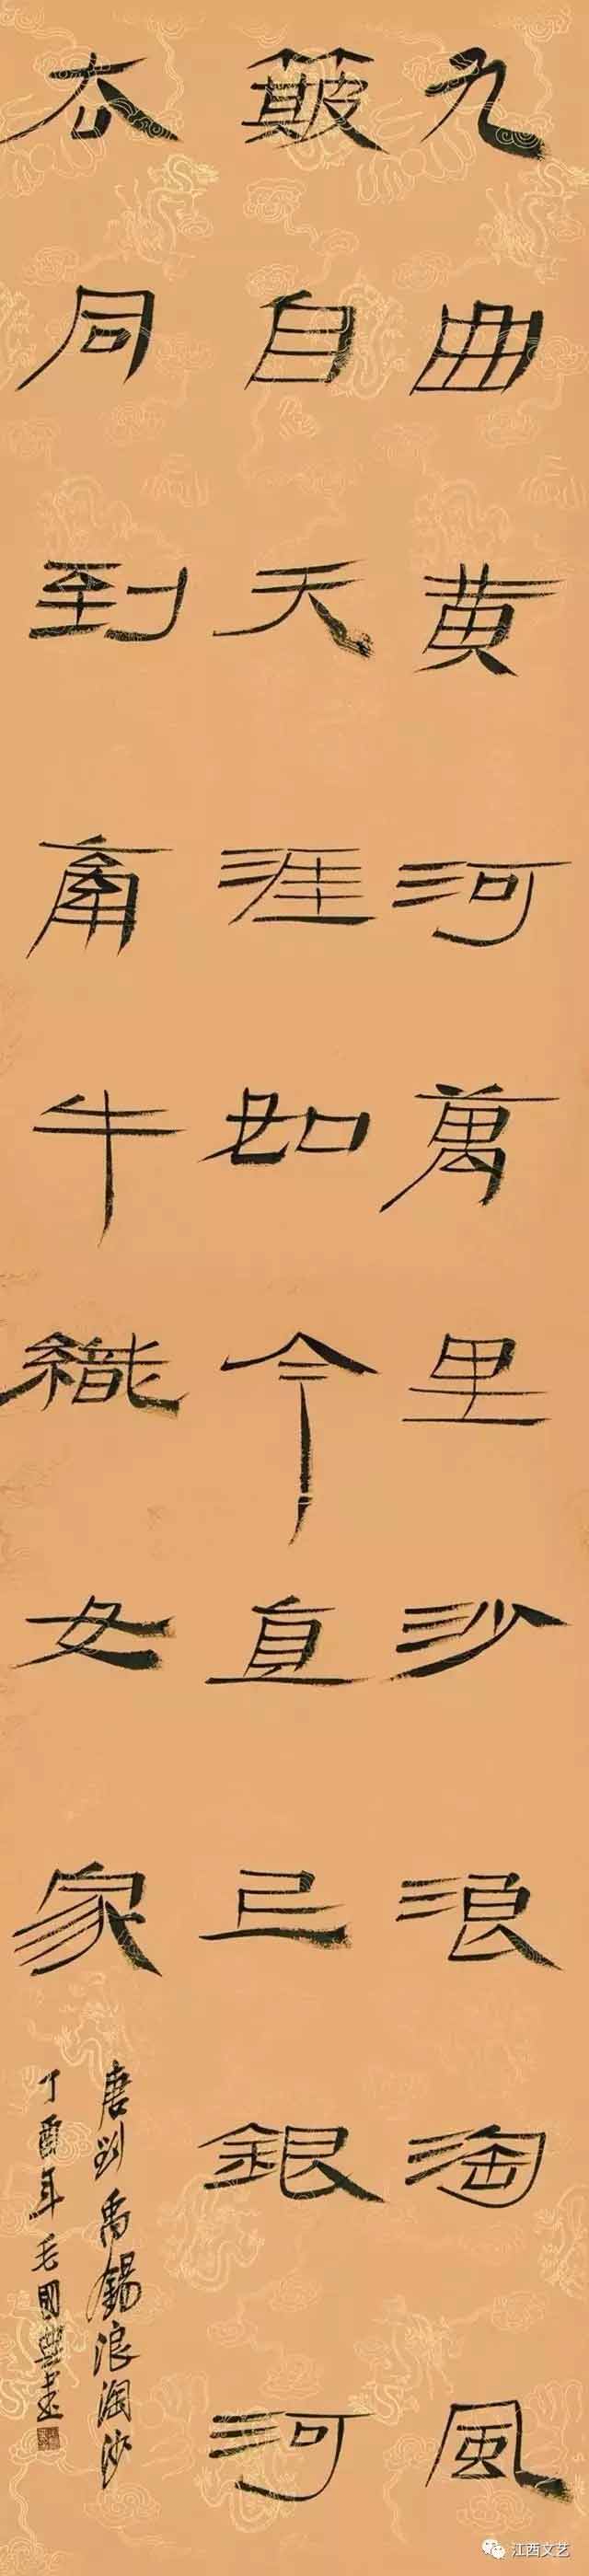 九曲黄河萬里沙浪淘風
簸自天涯如今直已銀河
去同到牽牛織女家
唐劉禹錫浪淘沙
丁酉年毛國典書
江西文艺